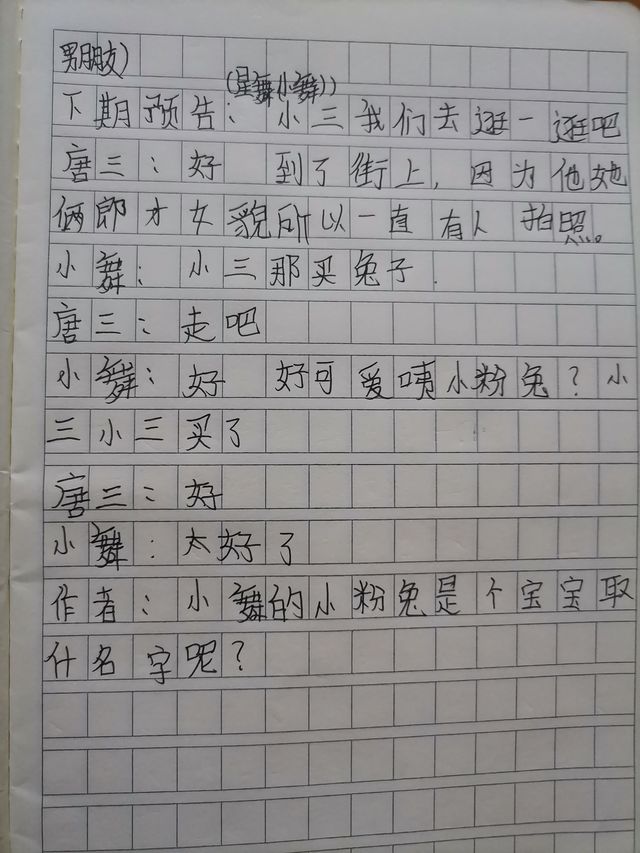 男朋友)
(星舞小舞))
下期预告: 小三我们去逛一逛吧
唐三:好 到了街上,因为他她
俩郎才女貌所以一直有人拍照。
小舞:小三那买兔子.
唐三:走吧
小舞:好 好可爱咦小粉兔?小
三小三买了
唐三:好
小舞:太好了
作者:小舞的小粉兔是个宝宝取
什名字呢?